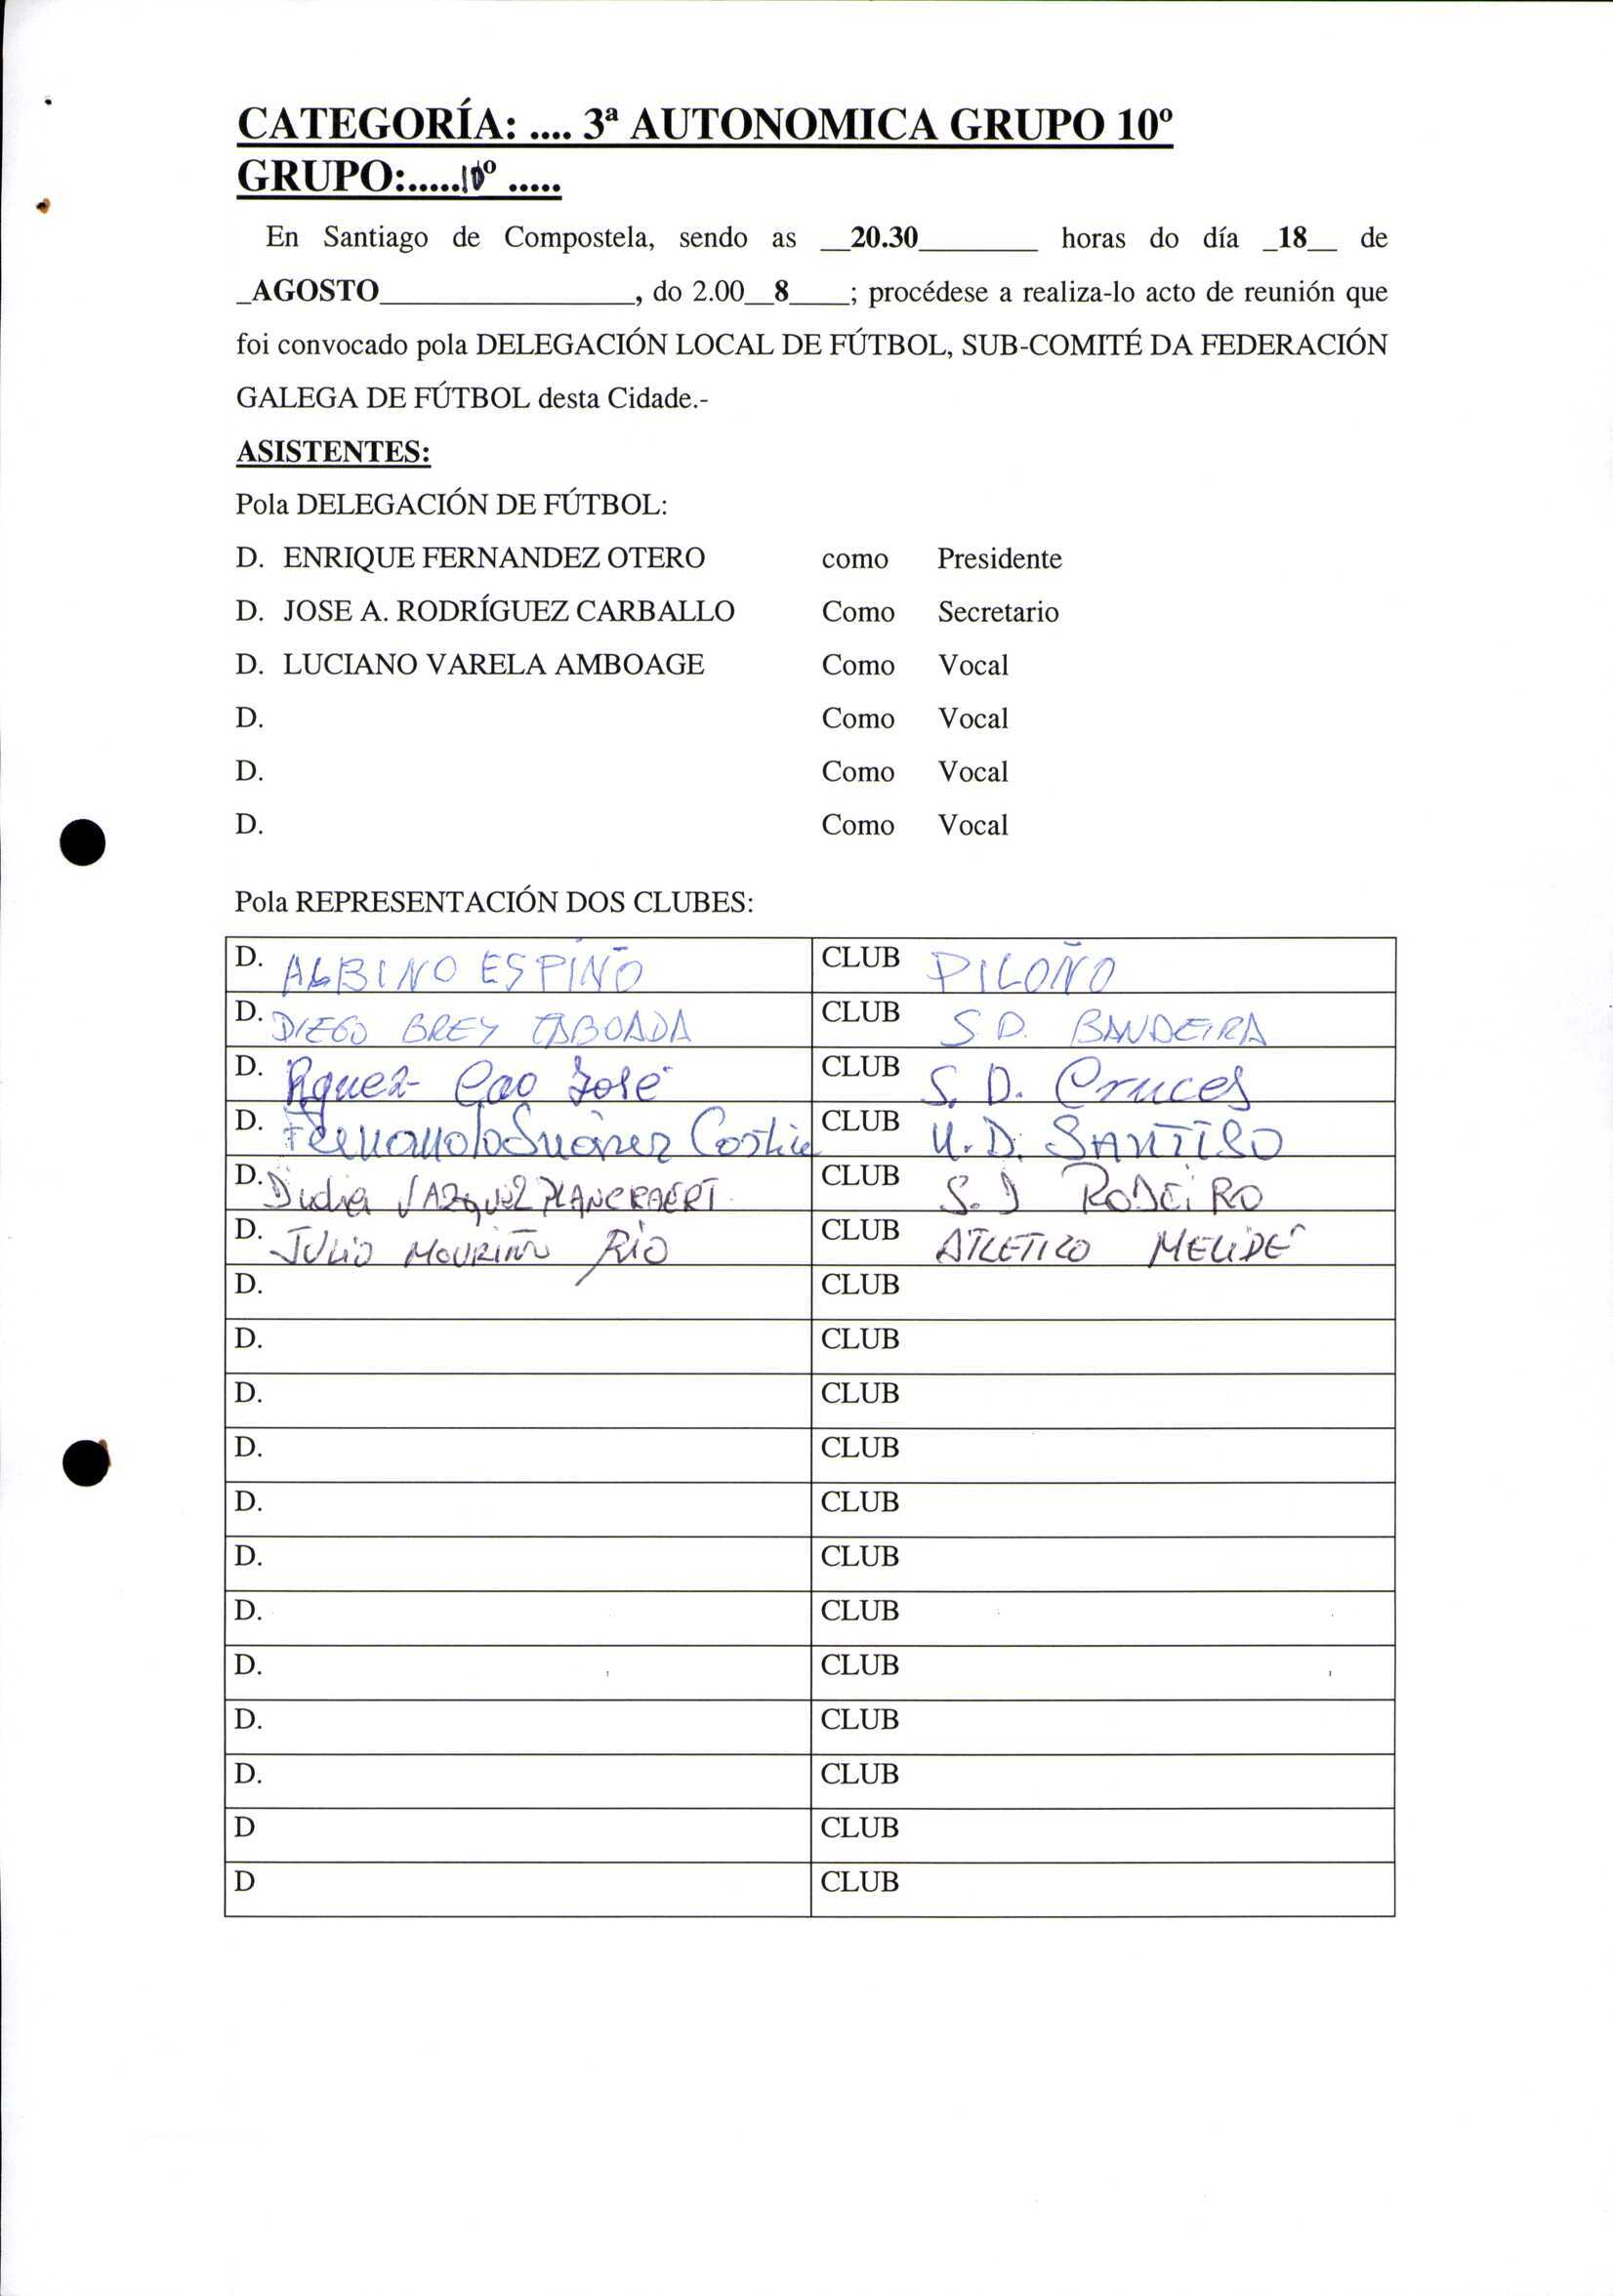 CATEGORÍA: .... 3ª AUTONOMICA GRUPO 10º
GRUPO:.....10º .....
En Santiago de Compostela, sendo as __20.30________ horas do día _18__ de
_AGOSTO_________________, do 2.00__8____; procédese a realiza-lo acto de reunión que
foi convocado pola DELEGACIÓN LOCAL DE FÚTBOL, SUB-COMITÉ DA FEDERACIÓN
GALEGA DE FÚTBOL desta Cidade.-
ASISTENTES:
Pola DELEGACIÓN DE FÚTBOL:
D. ENRIQUE FERNANDEZ OTERO como Presidente
D. JOSE A. RODRÍGUEZ CARBALLO Como Secretario
D. LUCIANO VARELA AMBOAGE Como Vocal
D. Como Vocal
D. Como Vocal
D. Como Vocal
Pola REPRESENTACIÓN DOS CLUBES:
D. ALBINO ESPIÑO CLUB PILOÑO
D. DIEGO BREY TABOADA CLUB S D. BANDEIRA
D. Rguez Cao José CLUB S. D. Cruces
D. Fernando Suárez CLUB U.D. SANTISO
D. VAZQUEZ CLUB S.D RODEIRO
D. JULIO MOURIÑO RIO CLUB ATLETICO MELIDE
D. CLUB
D. CLUB
D. CLUB
D. CLUB
D. CLUB
D. CLUB
D. CLUB
D. CLUB
D. CLUB
D. CLUB
D CLUB
D CLUB